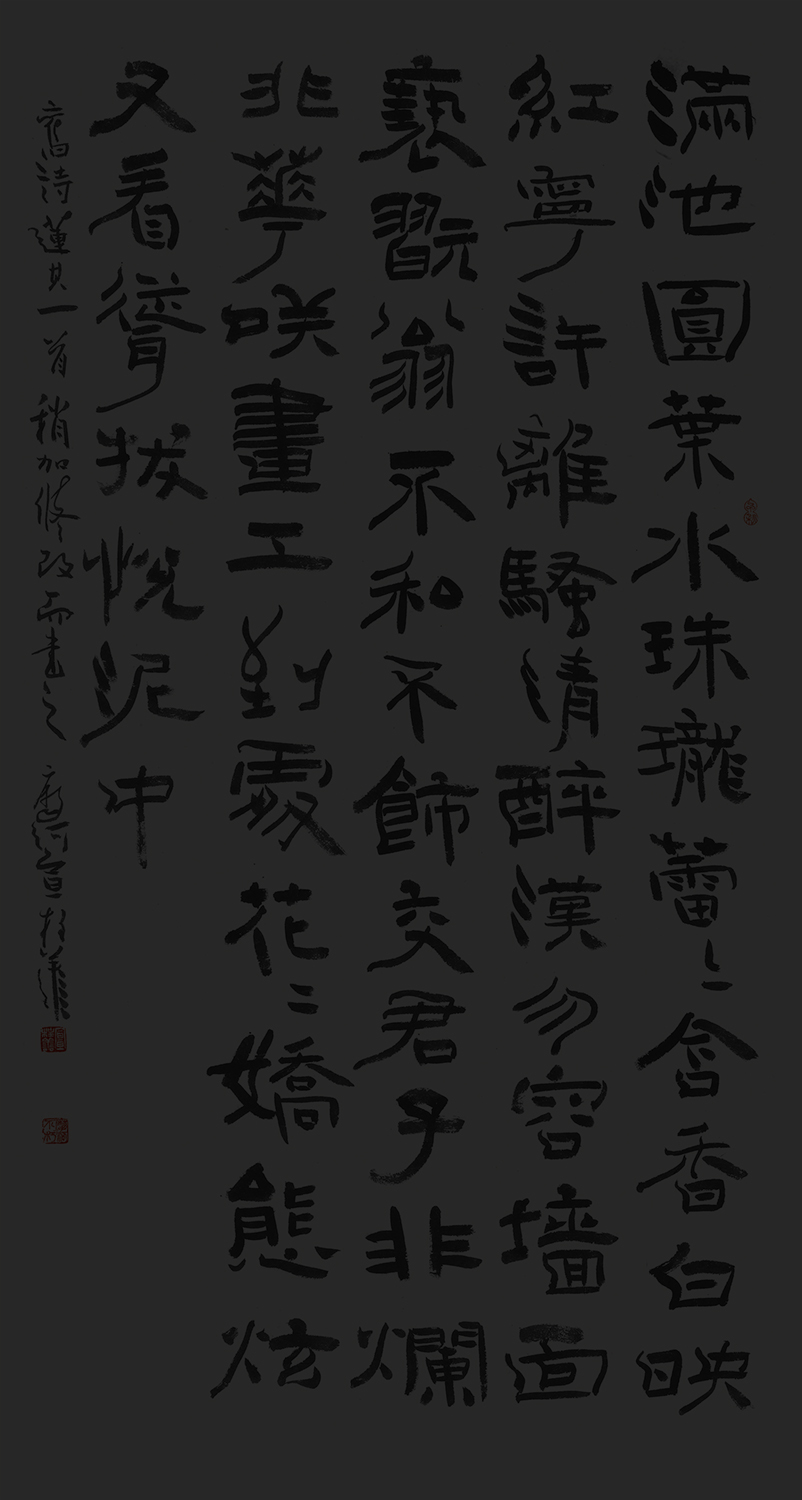 滿池圓葉水珠瓏蕾〻含香白映
紅寧許離騷清醉漢勿容墻面
褻翫翁不和不飾交君子非爛
非華咲畫工到處花〻嬌態炫
又看聳拔悅泥中
舊詩蓮其一首稍加修改而書之